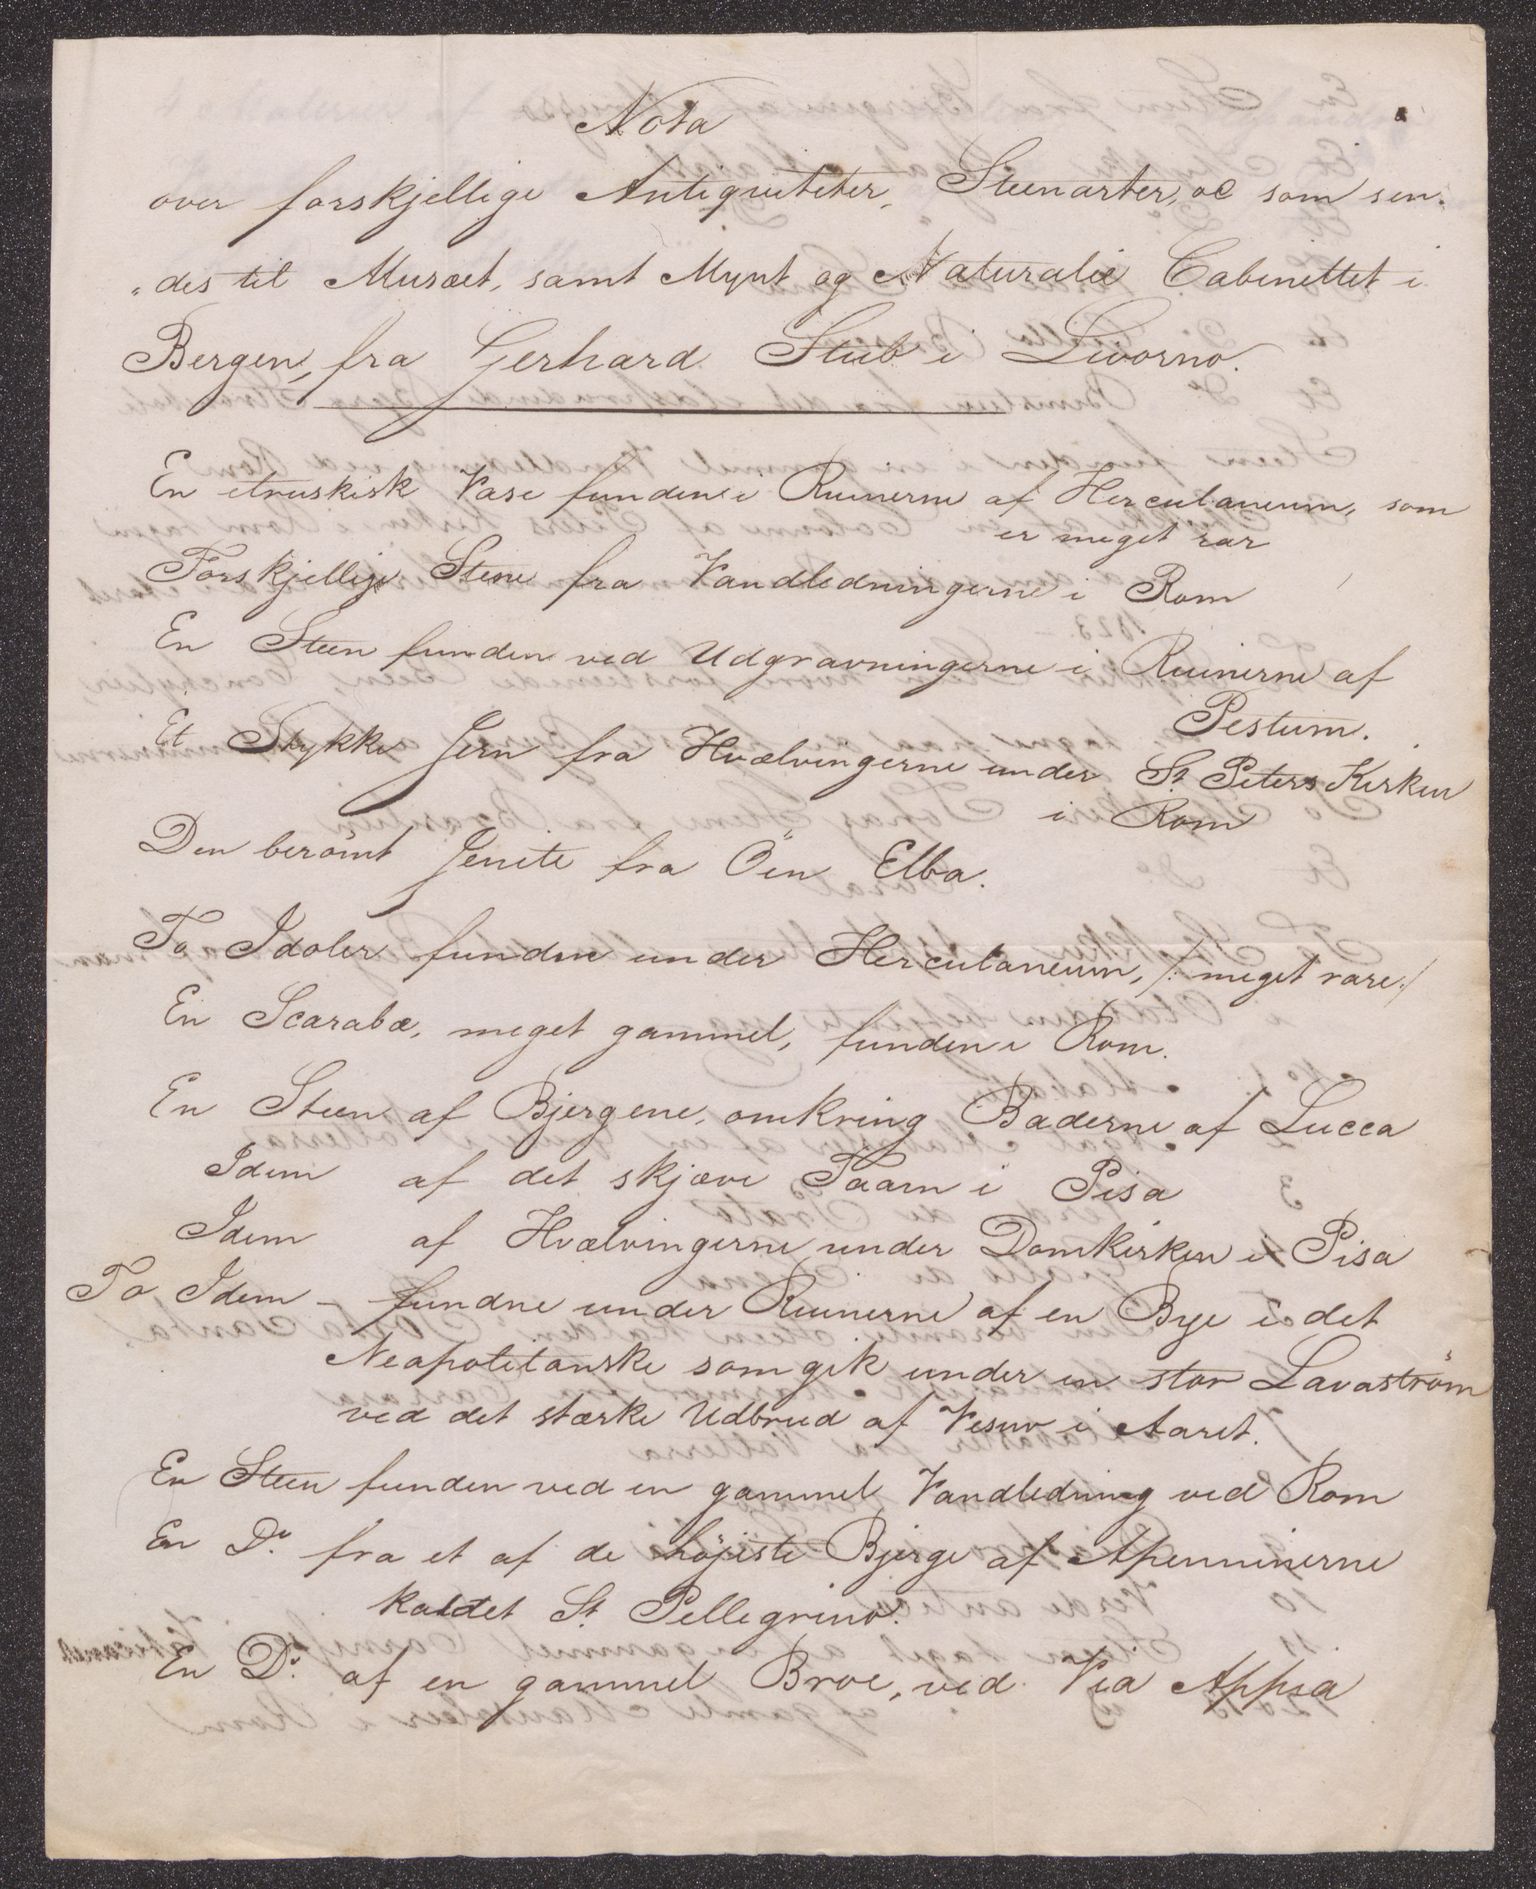 Nota
over forskjellige Antiqviteter, Steenarter, oc som sen-
„des til Musæet, samt Mynt og Naturalie Cabinettet i
Bergen, fra Gerhard Stub i Livorno.
En etruskisk Vase funden i Ruinerne af Herculaneum, som
er meget rar
Forskjellige Stene fra Vandledningerne i Rom
En Steen funden ved Udgravningerne i Ruinerne af
Pestum.
Et Stykke Jern fra Hvælvingerne under St Peters Kirken
i Rom
Den berømt Jenite fra Öen Elba.
To Idoler fundne under Herculaneum, /: meget rare :/
En Scarabæ, meget gammel, funden i Rom.
En Steen af Bjergene, omkring Baderne af Lucca
Idem af det skjæve Taarn i Pisa
Idem af Hvælvingerne under Domkirken i Pisa
To Idem – fundne under Ruinerne af en Bye i det
Neapolitanske som gik under en stor Lavaström
ved det stærke Udbrud af Vesuv i Aaret.
En Steen funden ved en gammel Vandledning ved Rom
En Do. fra et af de høieste Bjerge af Apenninerne
kaldet St. Pellegrino.
En Do. af en gammel Broe, ved Via Appia